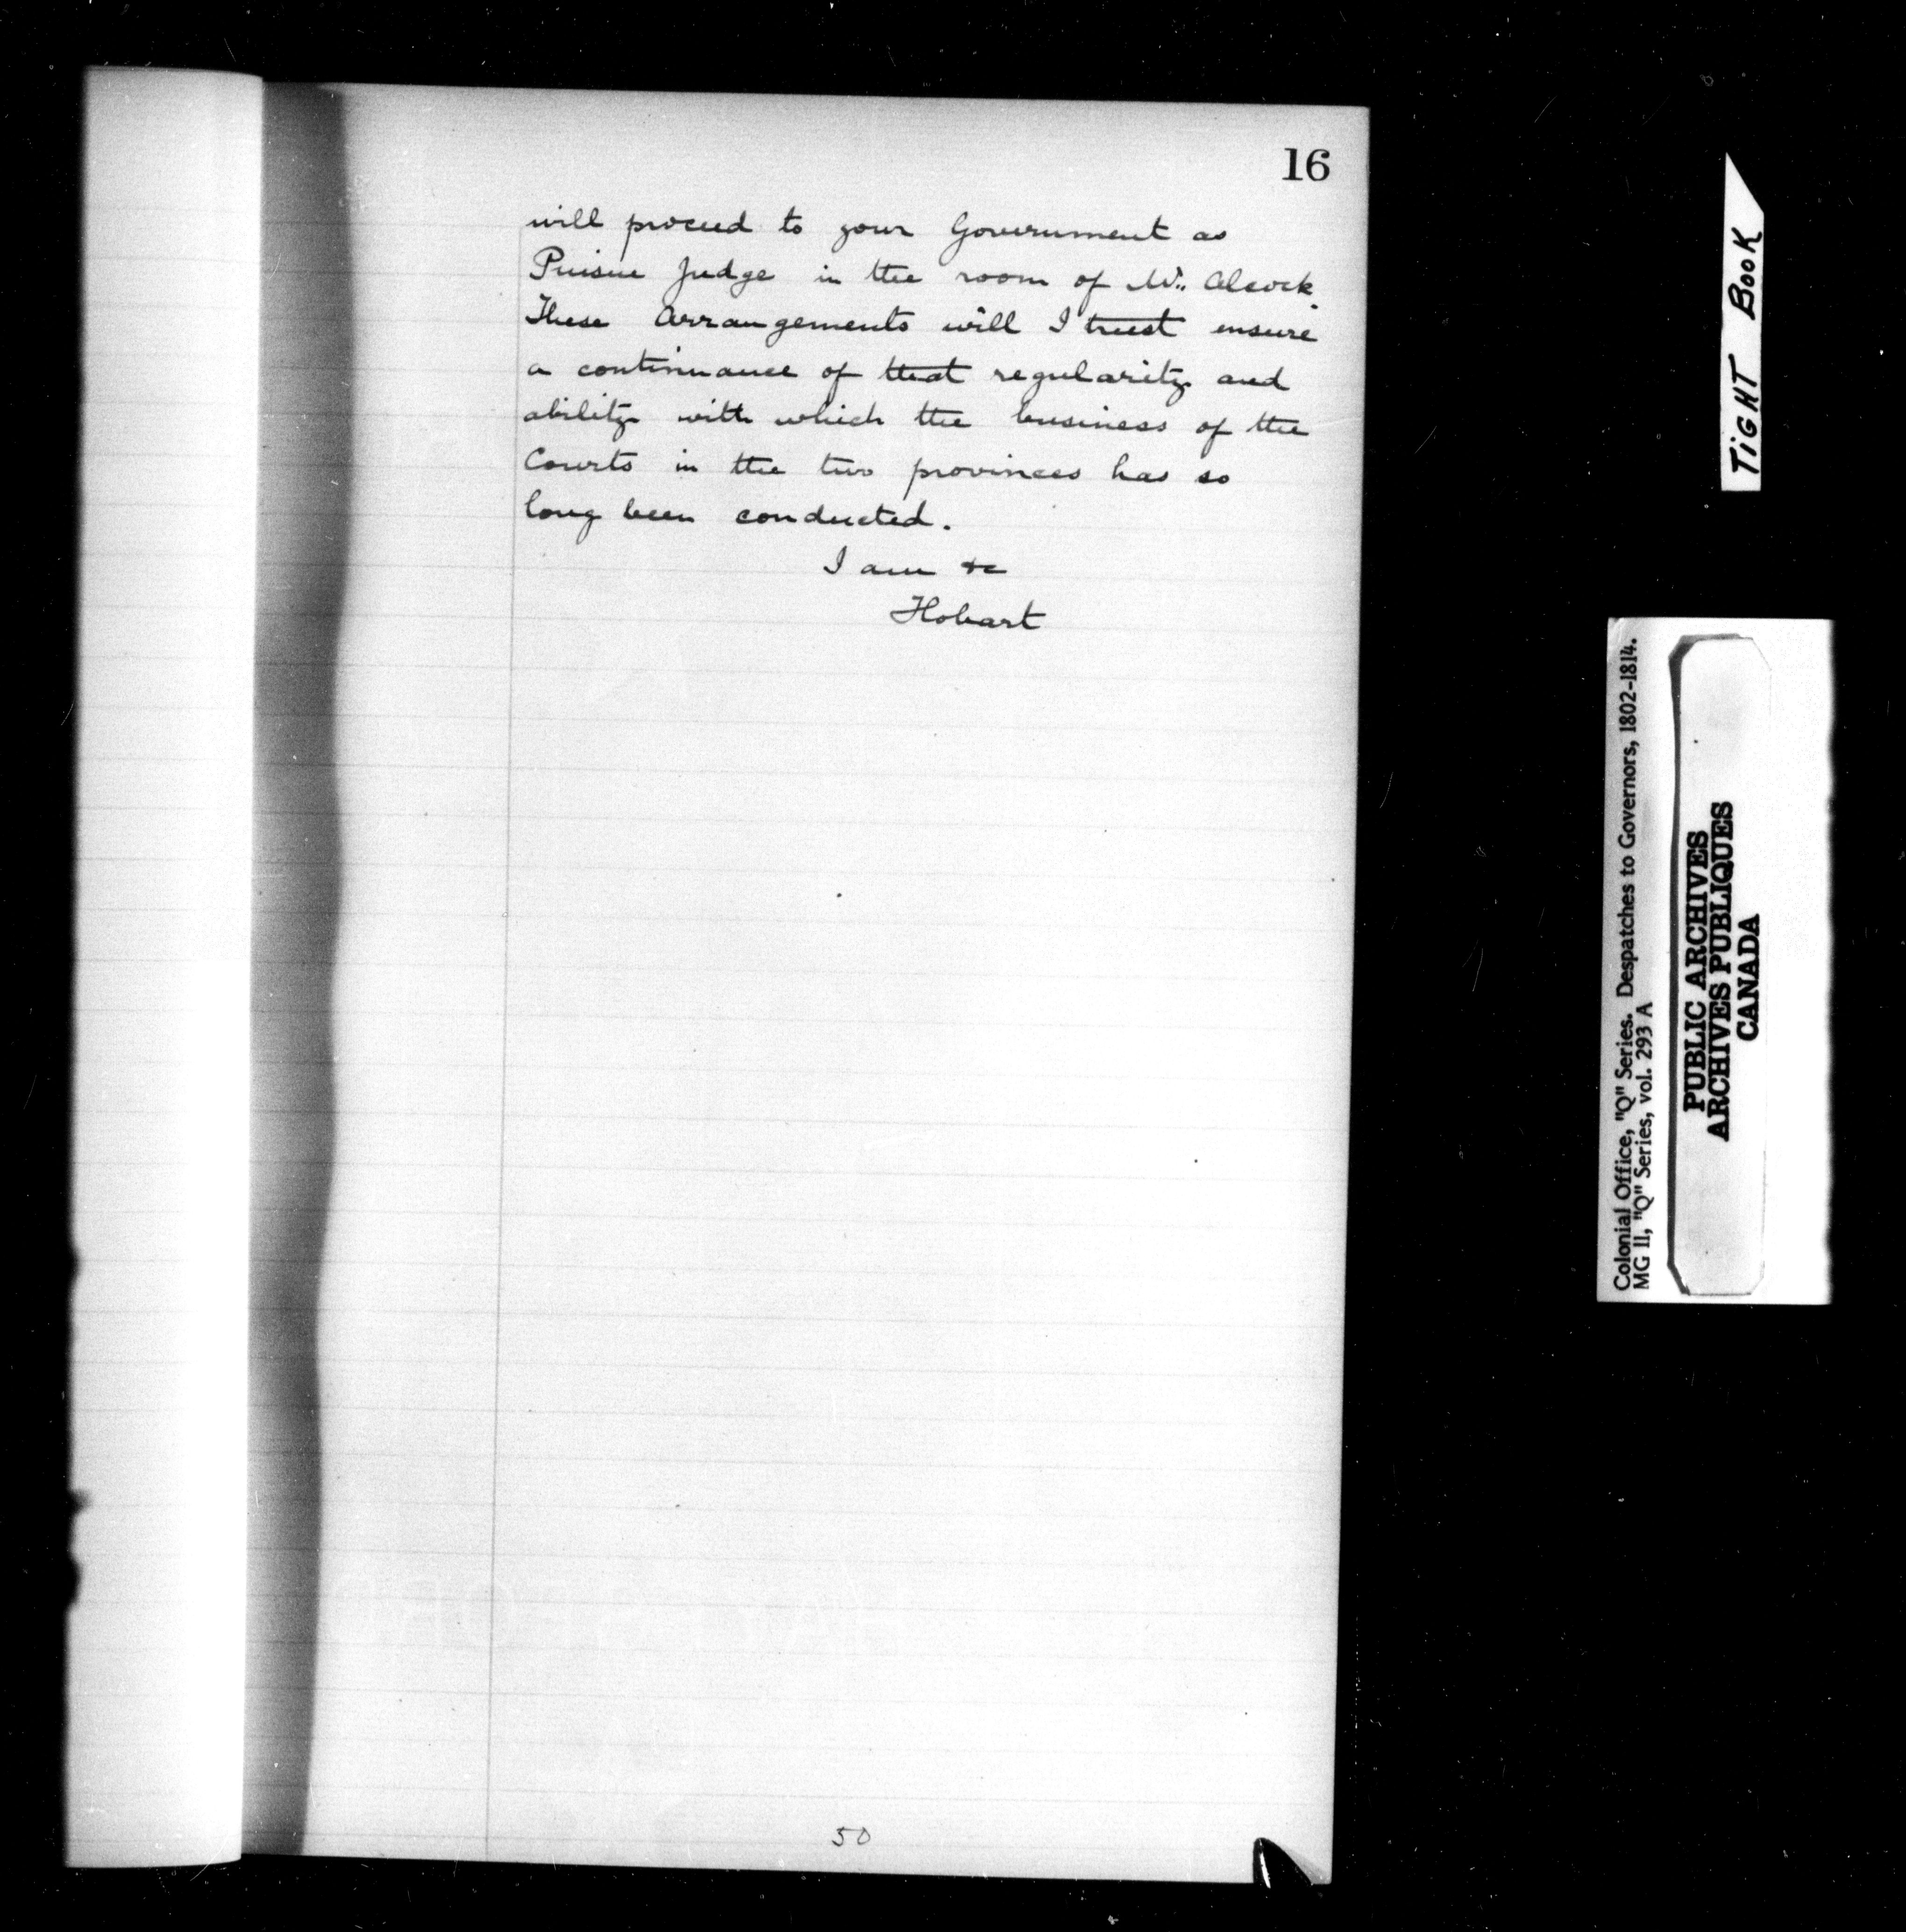 16
will proceed to your Government as
Puisne Judge in the room of Mr. Alcock.
These Arrangements will I trust ensure
a continuance of that regularity and
ability with which the business of the
Courts in the two provinces has so
long been conducted.
I am &c
Hobart
50
TIGHT BOOK
Colonial Office, "Q" Series. Despatches to Governors, 1802-1814.
MG 11, "Q" Series, vol. 293 A
PUBLIC ARCHIVES
ARCHIVES PUBLIQUES
CANADA